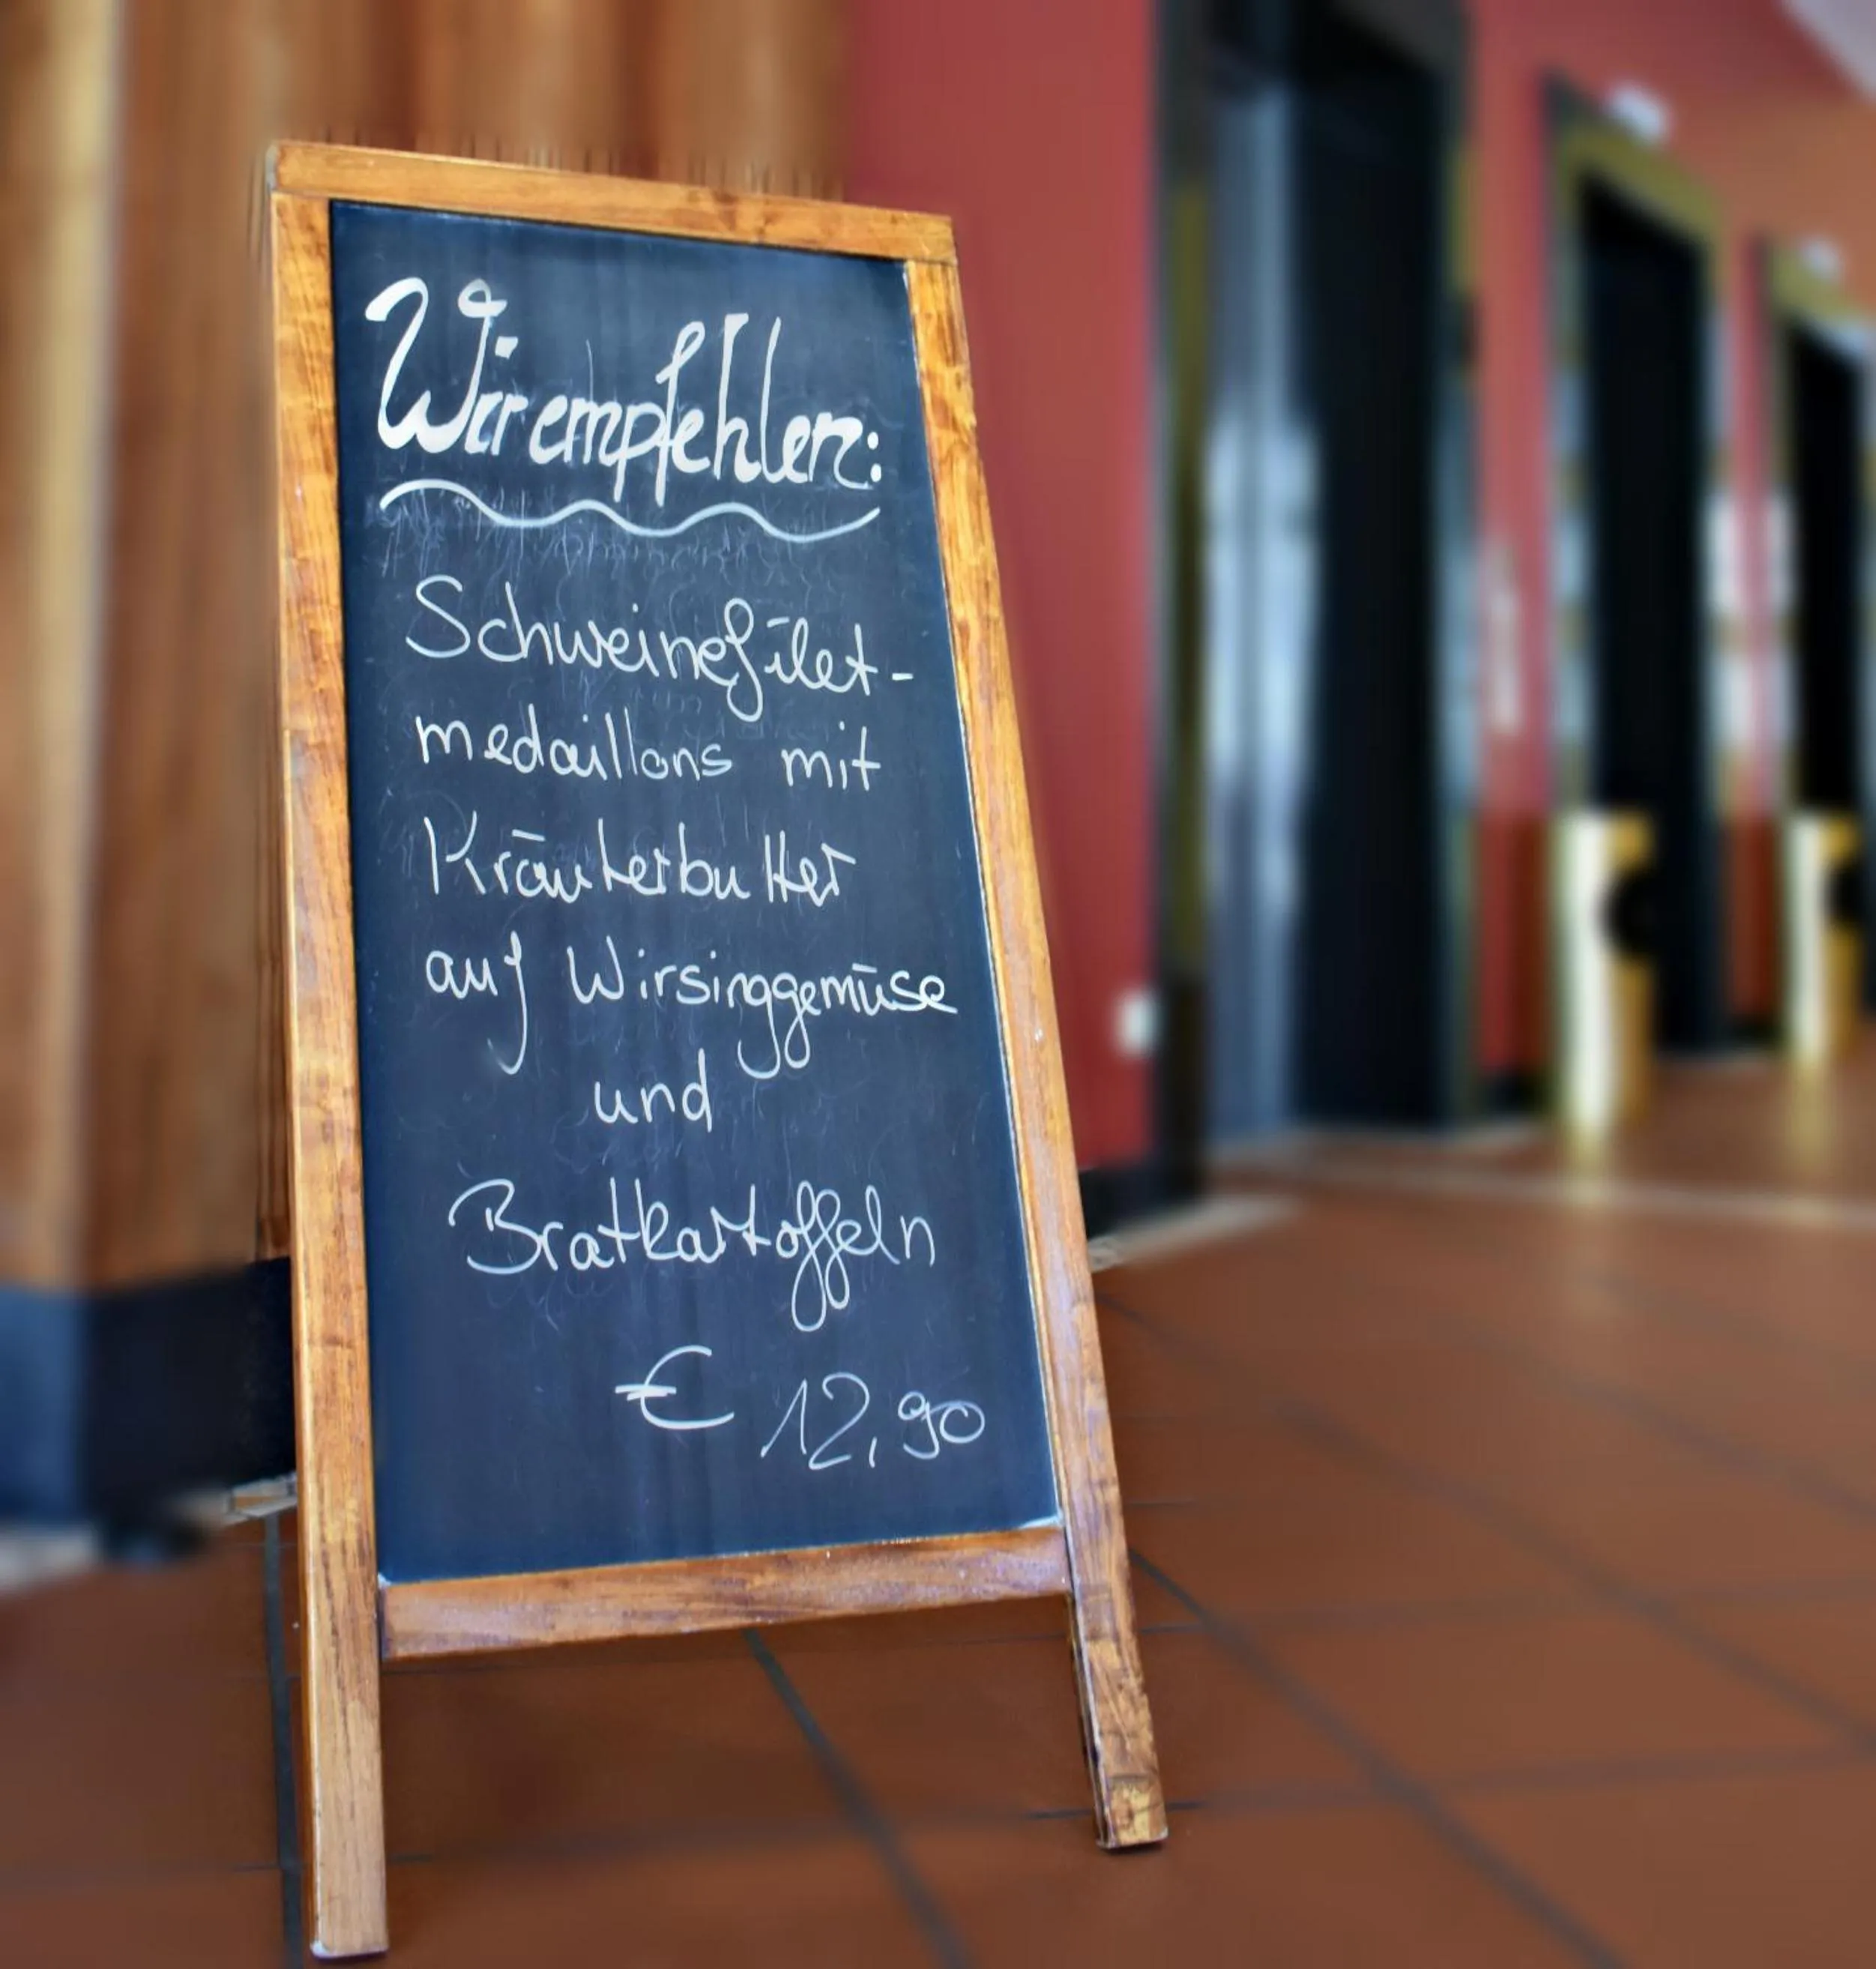 Wir empfehlen:
Schweinefilet-
medaillons mit
Kräuterbutter
auf Wirsinggemüse
und
Bratkartoffeln
€ 12,90